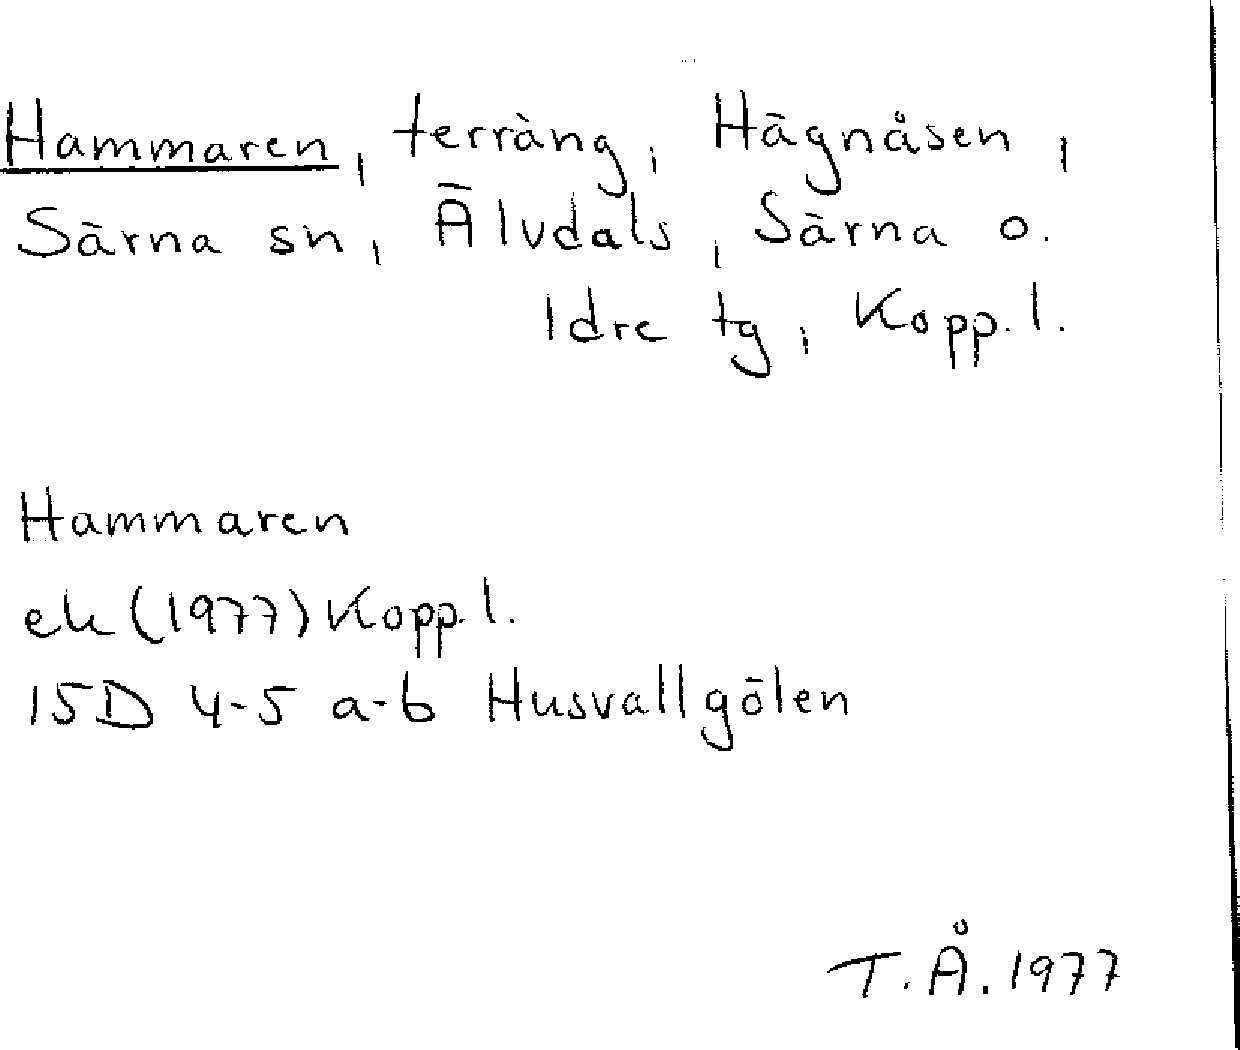 Hammaren, terräng, Hägnåsen,
Särna sn, Älvdals, Särna o.
Idre tg, Kopp.l.
Hammaren
ek (1977) Kopp.l.
15D 4-5 a-b Husvallgölen
T.Å.1977